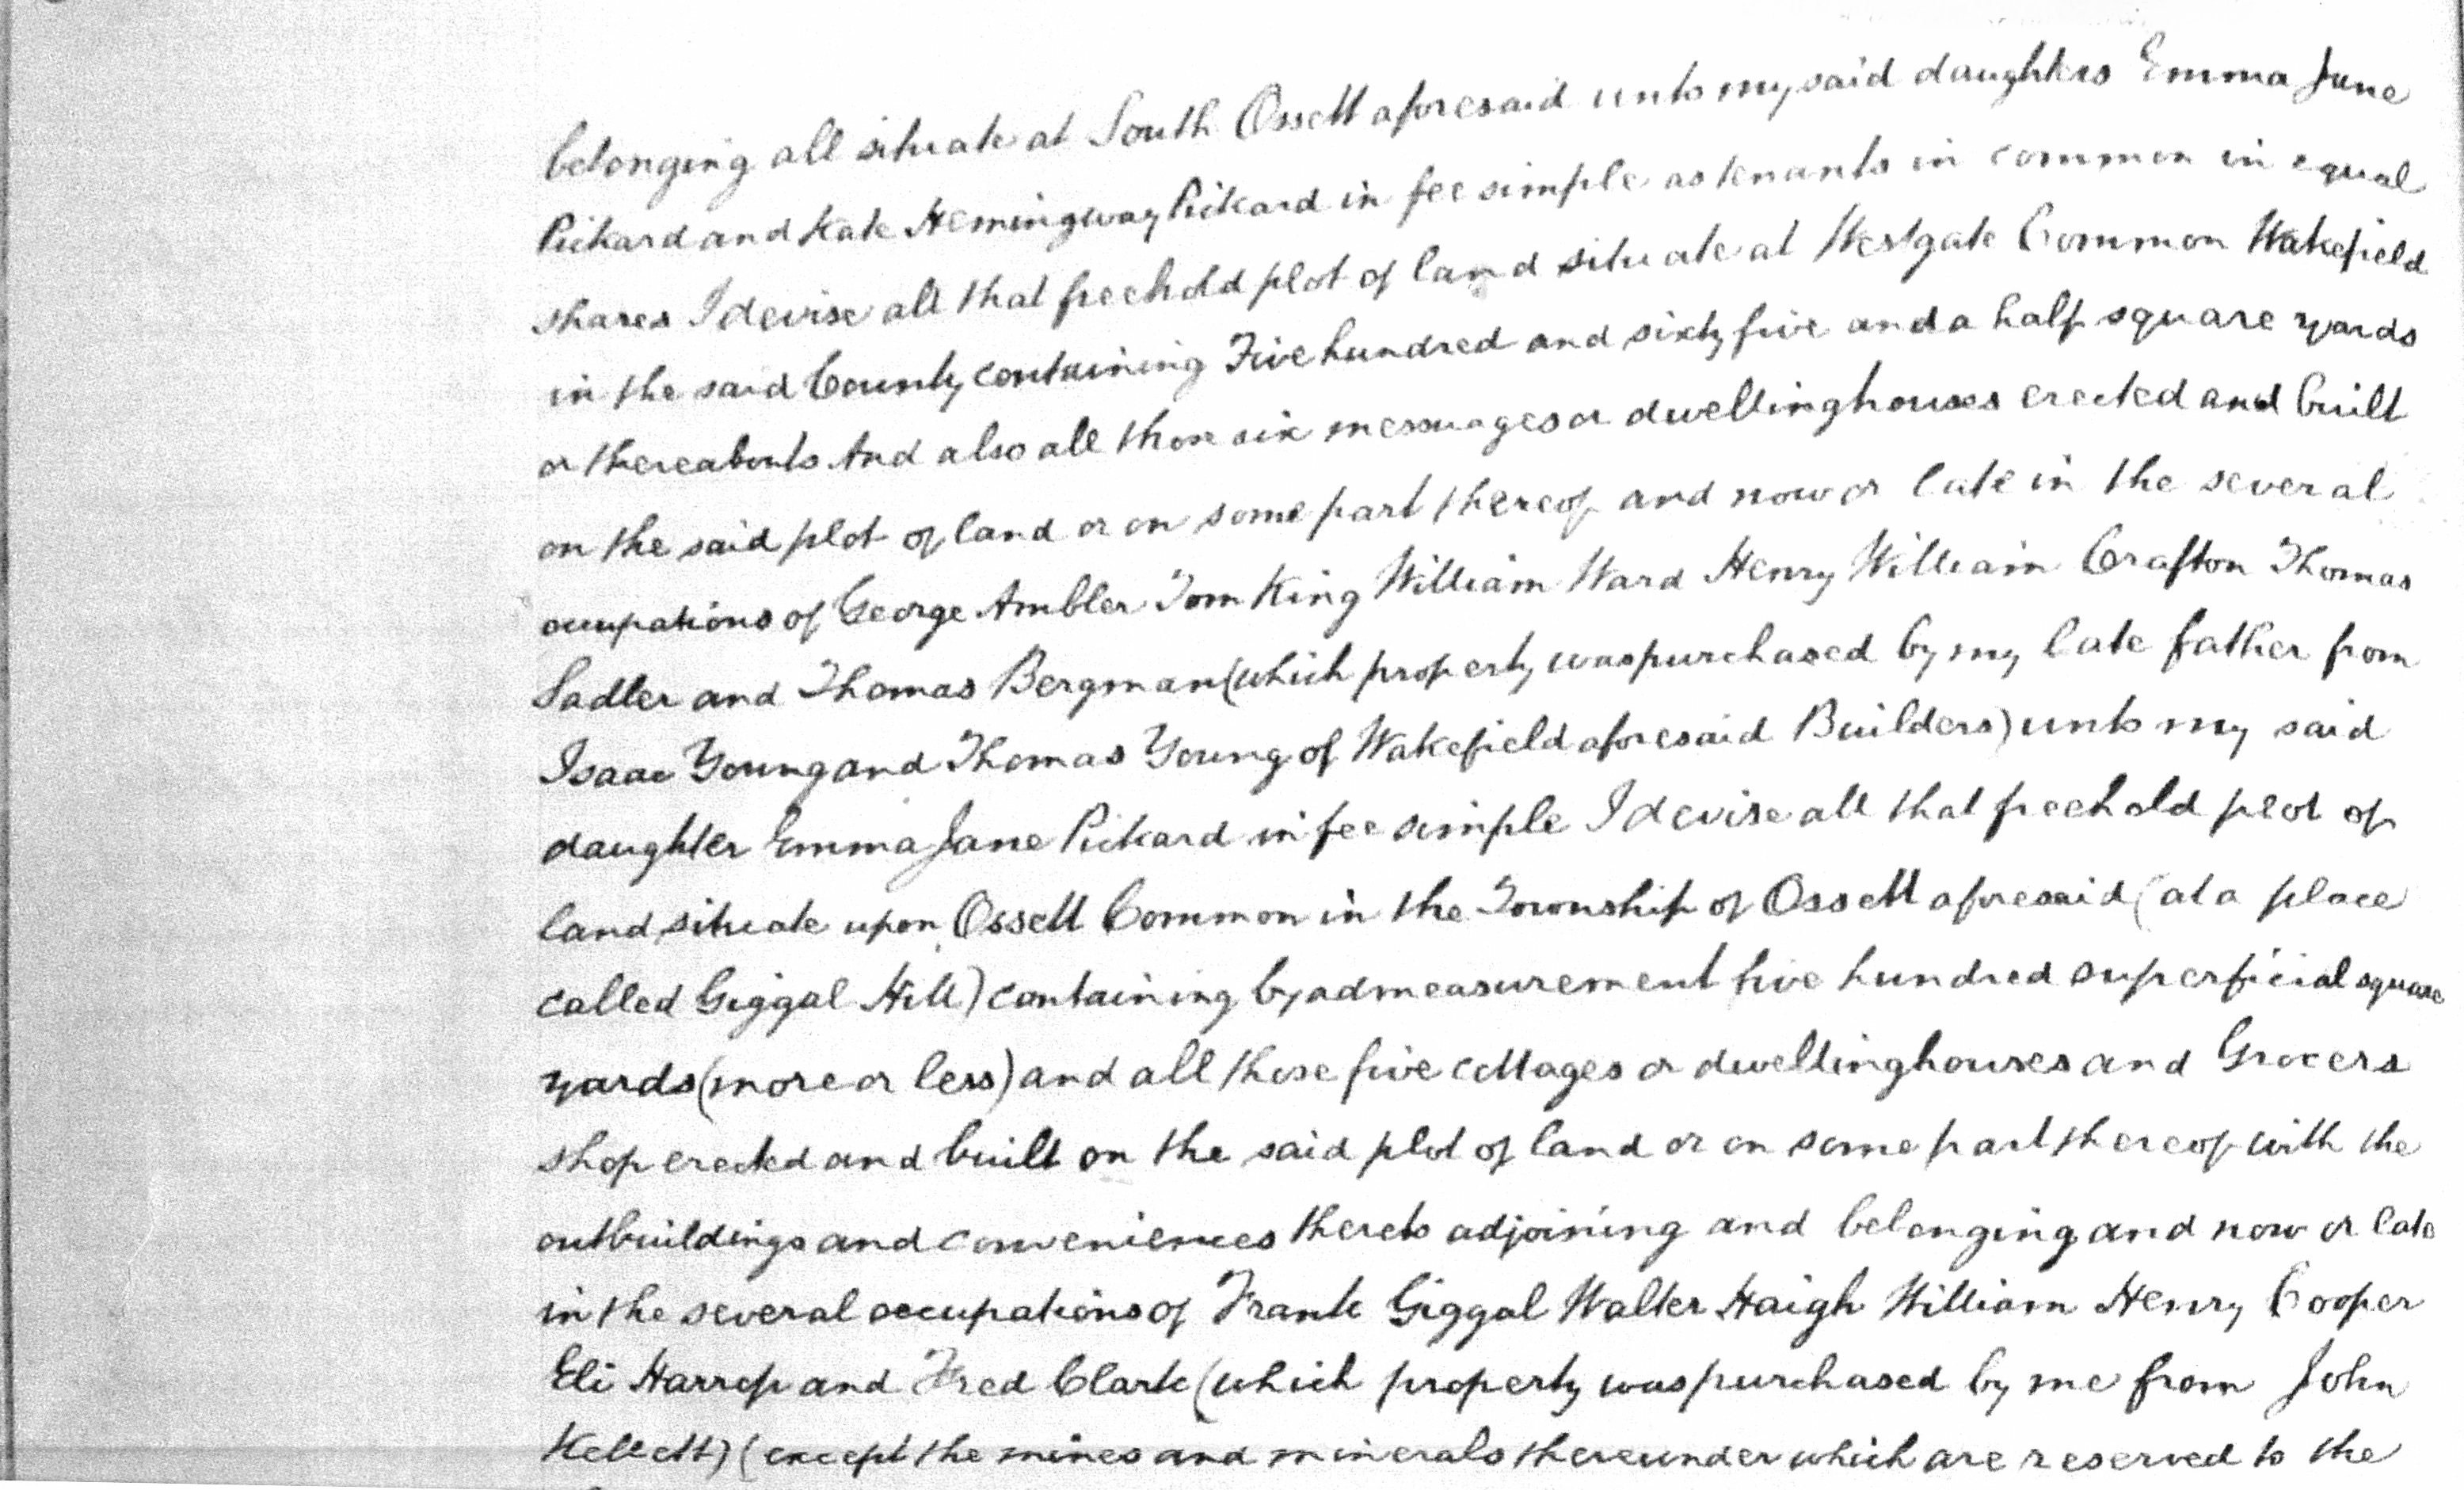 belonging all situate at South Ossett aforesaid unto my said daughters Emma Jane
Pickard and Kate Hemingway Pickard in fee simple as tenants in common in equal
shares I devise all that freehold plot of land situate at Westgate Common Wakefield
in the said County containing Five hundred and sixty five and a half square yards
or thereabouts And also all those six messuages or dwellinghouses erected and built
on the said plot of land or on some part thereof and now or late in the several
occupations of George Ambler Tom King William Ward Henry William Crafton Thomas
Sadler and Thomas Bergman (which property was purchased by my late father from
Isaac Young and Thomas Young of Wakefield aforesaid Builders) unto my said
daughter Emma Jane Pickard in fee simple I devise all that freehold plot of
land situate upon Ossett Common in the Township of Ossett aforesaid (at a place
called Giggal Hill) containing by admeasurement five hundred superficial square
yards (more or less) and all those five cottages or dwellinghouses and Grocers
shop erected and built on the said plot of land or on some part thereof with the
outbuildings and conveniences thereto adjoining and belonging and now or late
in the several occupations of Frank Giggal Walter Haigh William Henry Cooper
Eli Harrop and Fred Clark (which property was purchased by me from John
Kellett) (except the mines and minerals thereunder which are reserved to the